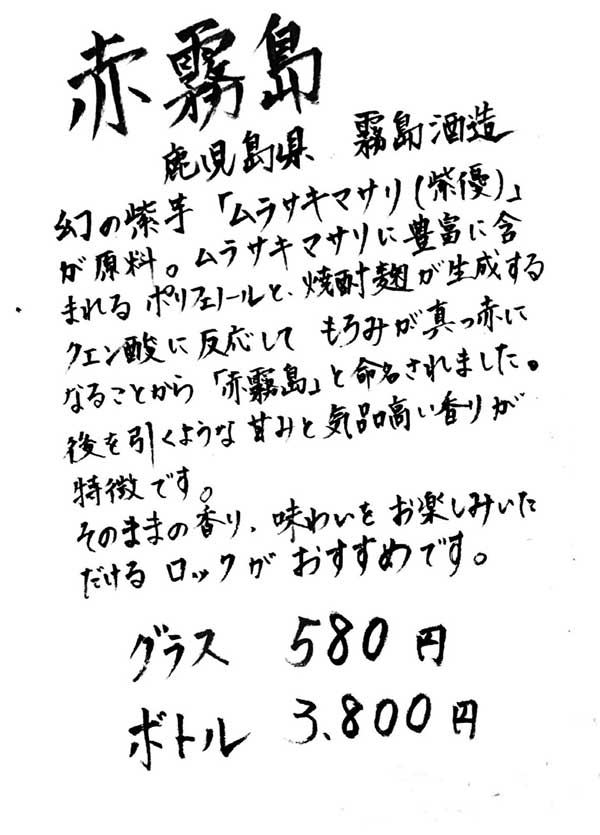 赤霧島
鹿児島県 霧島酒造
幻の紫芋「ムラサキマサリ(紫優)」
が原料。ムラサキマサリに豊富に含
まれるポリフェノールと、焼酎麹が生成する
クエン酸に反応して もろみが真っ赤に
なることから「赤霧島」と命名されました。
後を引くような甘みと気品高い香りが
特徴です。
そのままの香り、味わいをお楽しみいた
だける ロックが おすすめです。
グラス 580円
ボトル 3,800円